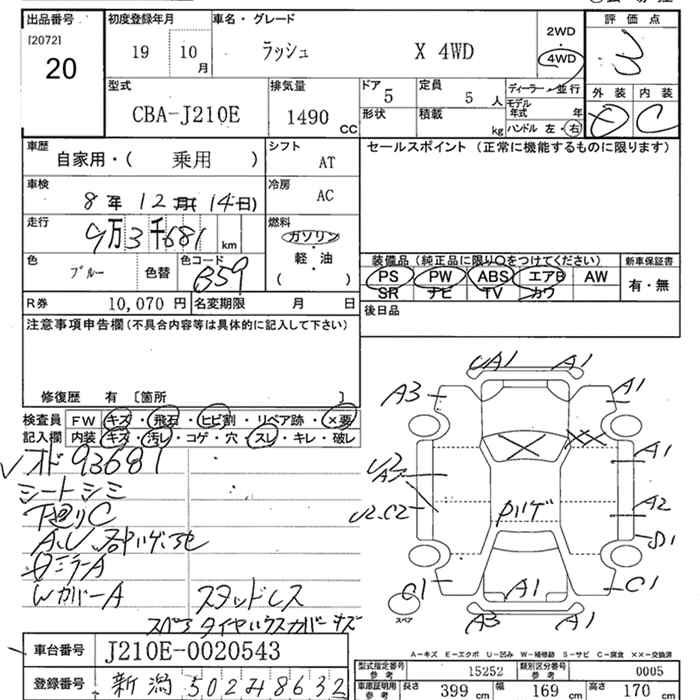 出品番号 初度登録年月 車名・グレード 評価点
[2072] 20
19 10月 ラッシュ X 4WD 2WD・4WD 3
型式 排気量 ドア 5 定員 5人 ディーラー・並行 外装 内装
CBA-J210E 1490 CC 形状 積載 kg モデル年式 年 C
ハンドル 左・右
車歴 自家用・( 乗用 ) シフト AT セールスポイント (正常に機能するものに限ります)
車検 8年12月(14日) 冷房 AC
走行 9万3千681km 燃料 ガソリン・軽・油 ( )
色 ブルー 色替 色コード B59
装備品(純正品に限り○をつけてください) 新車保証書
PS PW ABS エアB AW 有・無
SR ナビ TV カワ
R券 10,070円 名変期限 月 日 後日品
注意事項申告欄(不具合内容等は具体的に記入して下さい)
修復歴 有 [箇所 ]
検査員 FW キズ・飛石・ヒビ割・リペア跡・×要
記入欄 内装 キズ・汚レ・コゲ・穴・スレ・キレ・破レ
オド93681
シートシミ
下廻りC
Wカバー A スタッドレス
スペアタイヤハウスカバー キズ
UA1 A1
A3 A1
A1
A2
U2.C2
C1 A1 C1
スペア A3 A1
A-キズ E-エクボ U-凹み W-補修跡 S-サビ C-腐食 ××-交換済
車台番号 J210E-0020543
型式指定番号 参考 15252 類別区分番号 参考 0005
登録番号 新潟 502 8632
車庫証明用 参考 長さ 399cm 幅 169cm 高さ 170cm